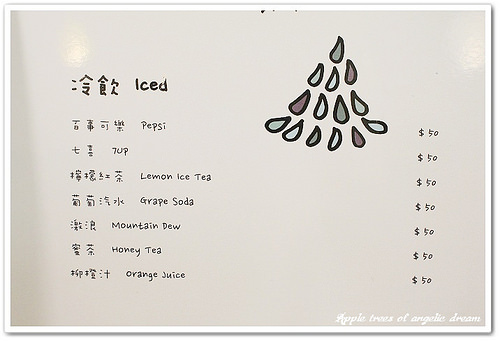 冷飲 Iced
百事可樂 Pepsi $50
七喜 7UP $50
檸檬紅茶 Lemon Ice Tea $50
葡萄汽水 Grape Soda $50
激浪 Mountain Dew $50
蜜茶 Honey Tea $50
柳橙汁 Orange Juice $50
Apple trees of angelic dream